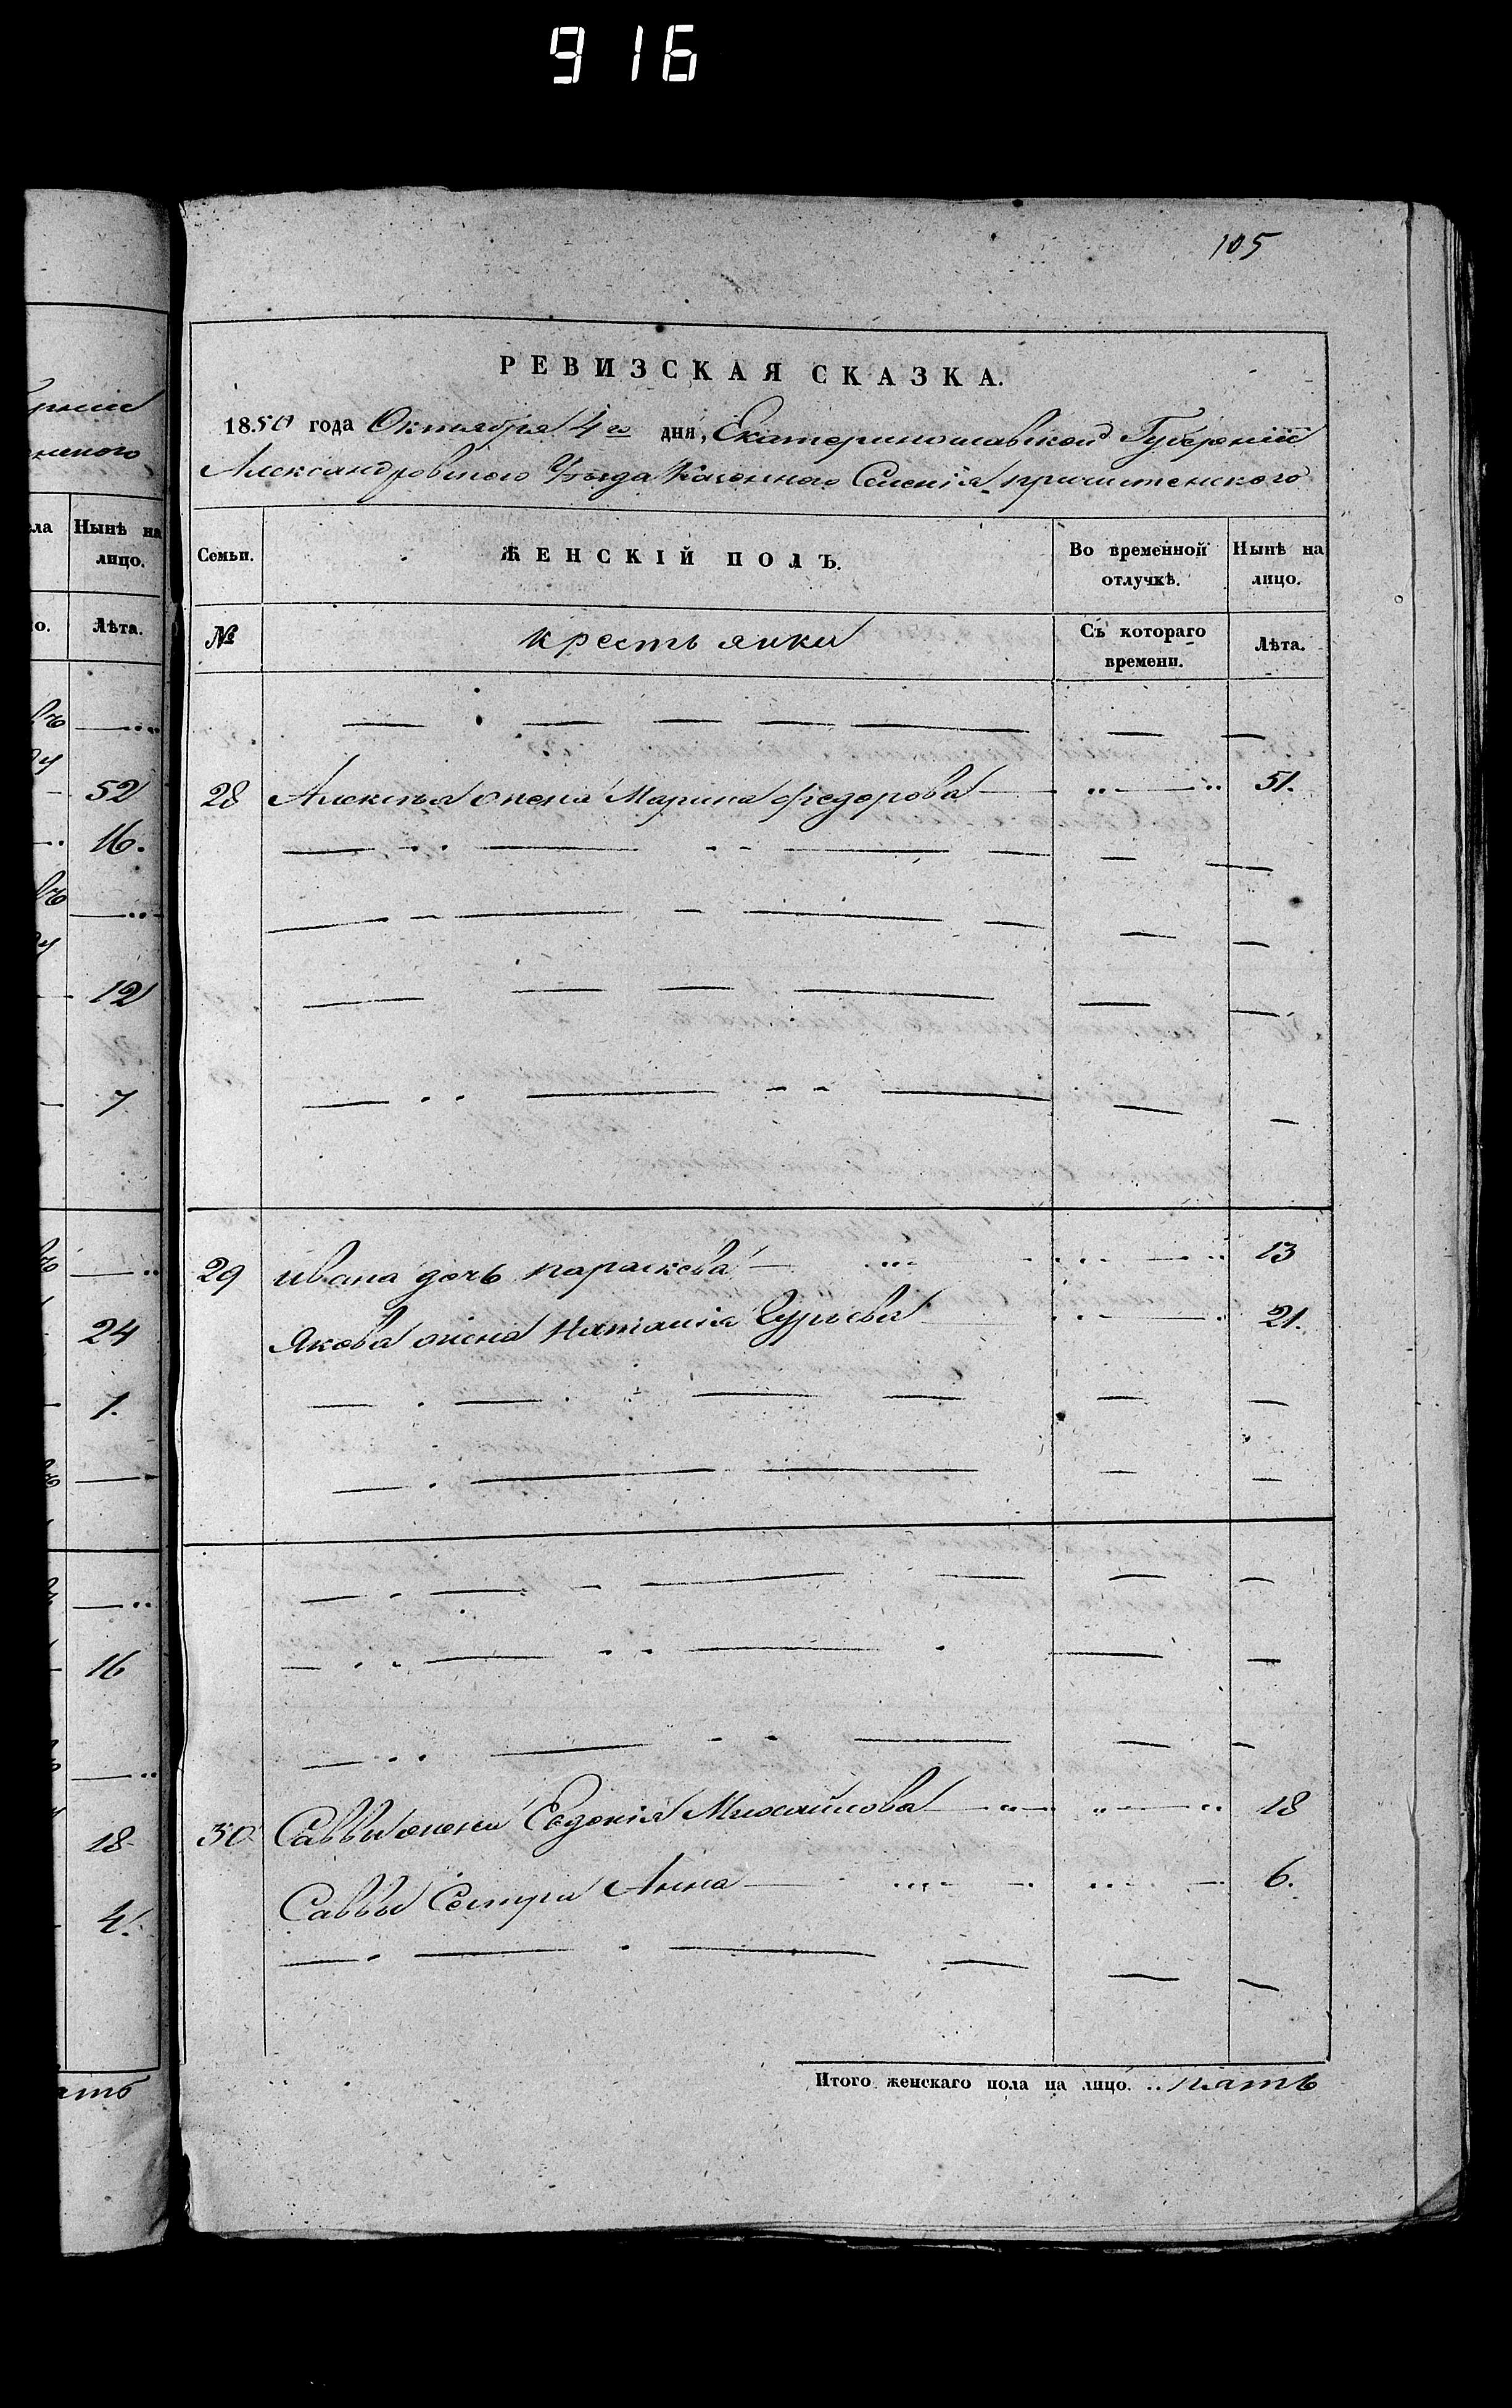 916
105
РЕВИЗСКАЯ СКАЗКА.
1850 года Октября 4го дня, Екатеринославской Губернии
Александровского Уезда Казенного Селенія пречистенского
ла Нынѣ на
лицо.
Семьи. ЖЕНСКІЙ ПОЛЪ. Во временной Нынѣ на
отлучкѣ. лицо.
о. Лѣта.
№ крестьянки Съ котораго Лѣта.
времени.
52
28 Алексѣя жена Марина федорова 51.
16.
12
7
29 ивана дочь параскева 13
Якова жена Наталія Гурьева 21.
24
1.
16
30 Саввы жена Евдокія Михайлова 18
18
Саввы Сестра Анна 6.
4.
Итого женскаго пола на лицо. .. пать
ать